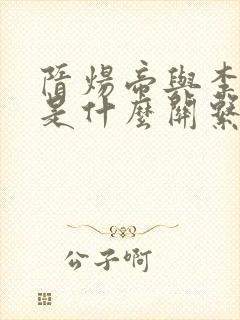 隋煬帝與李
是什麼關繫
公子啊